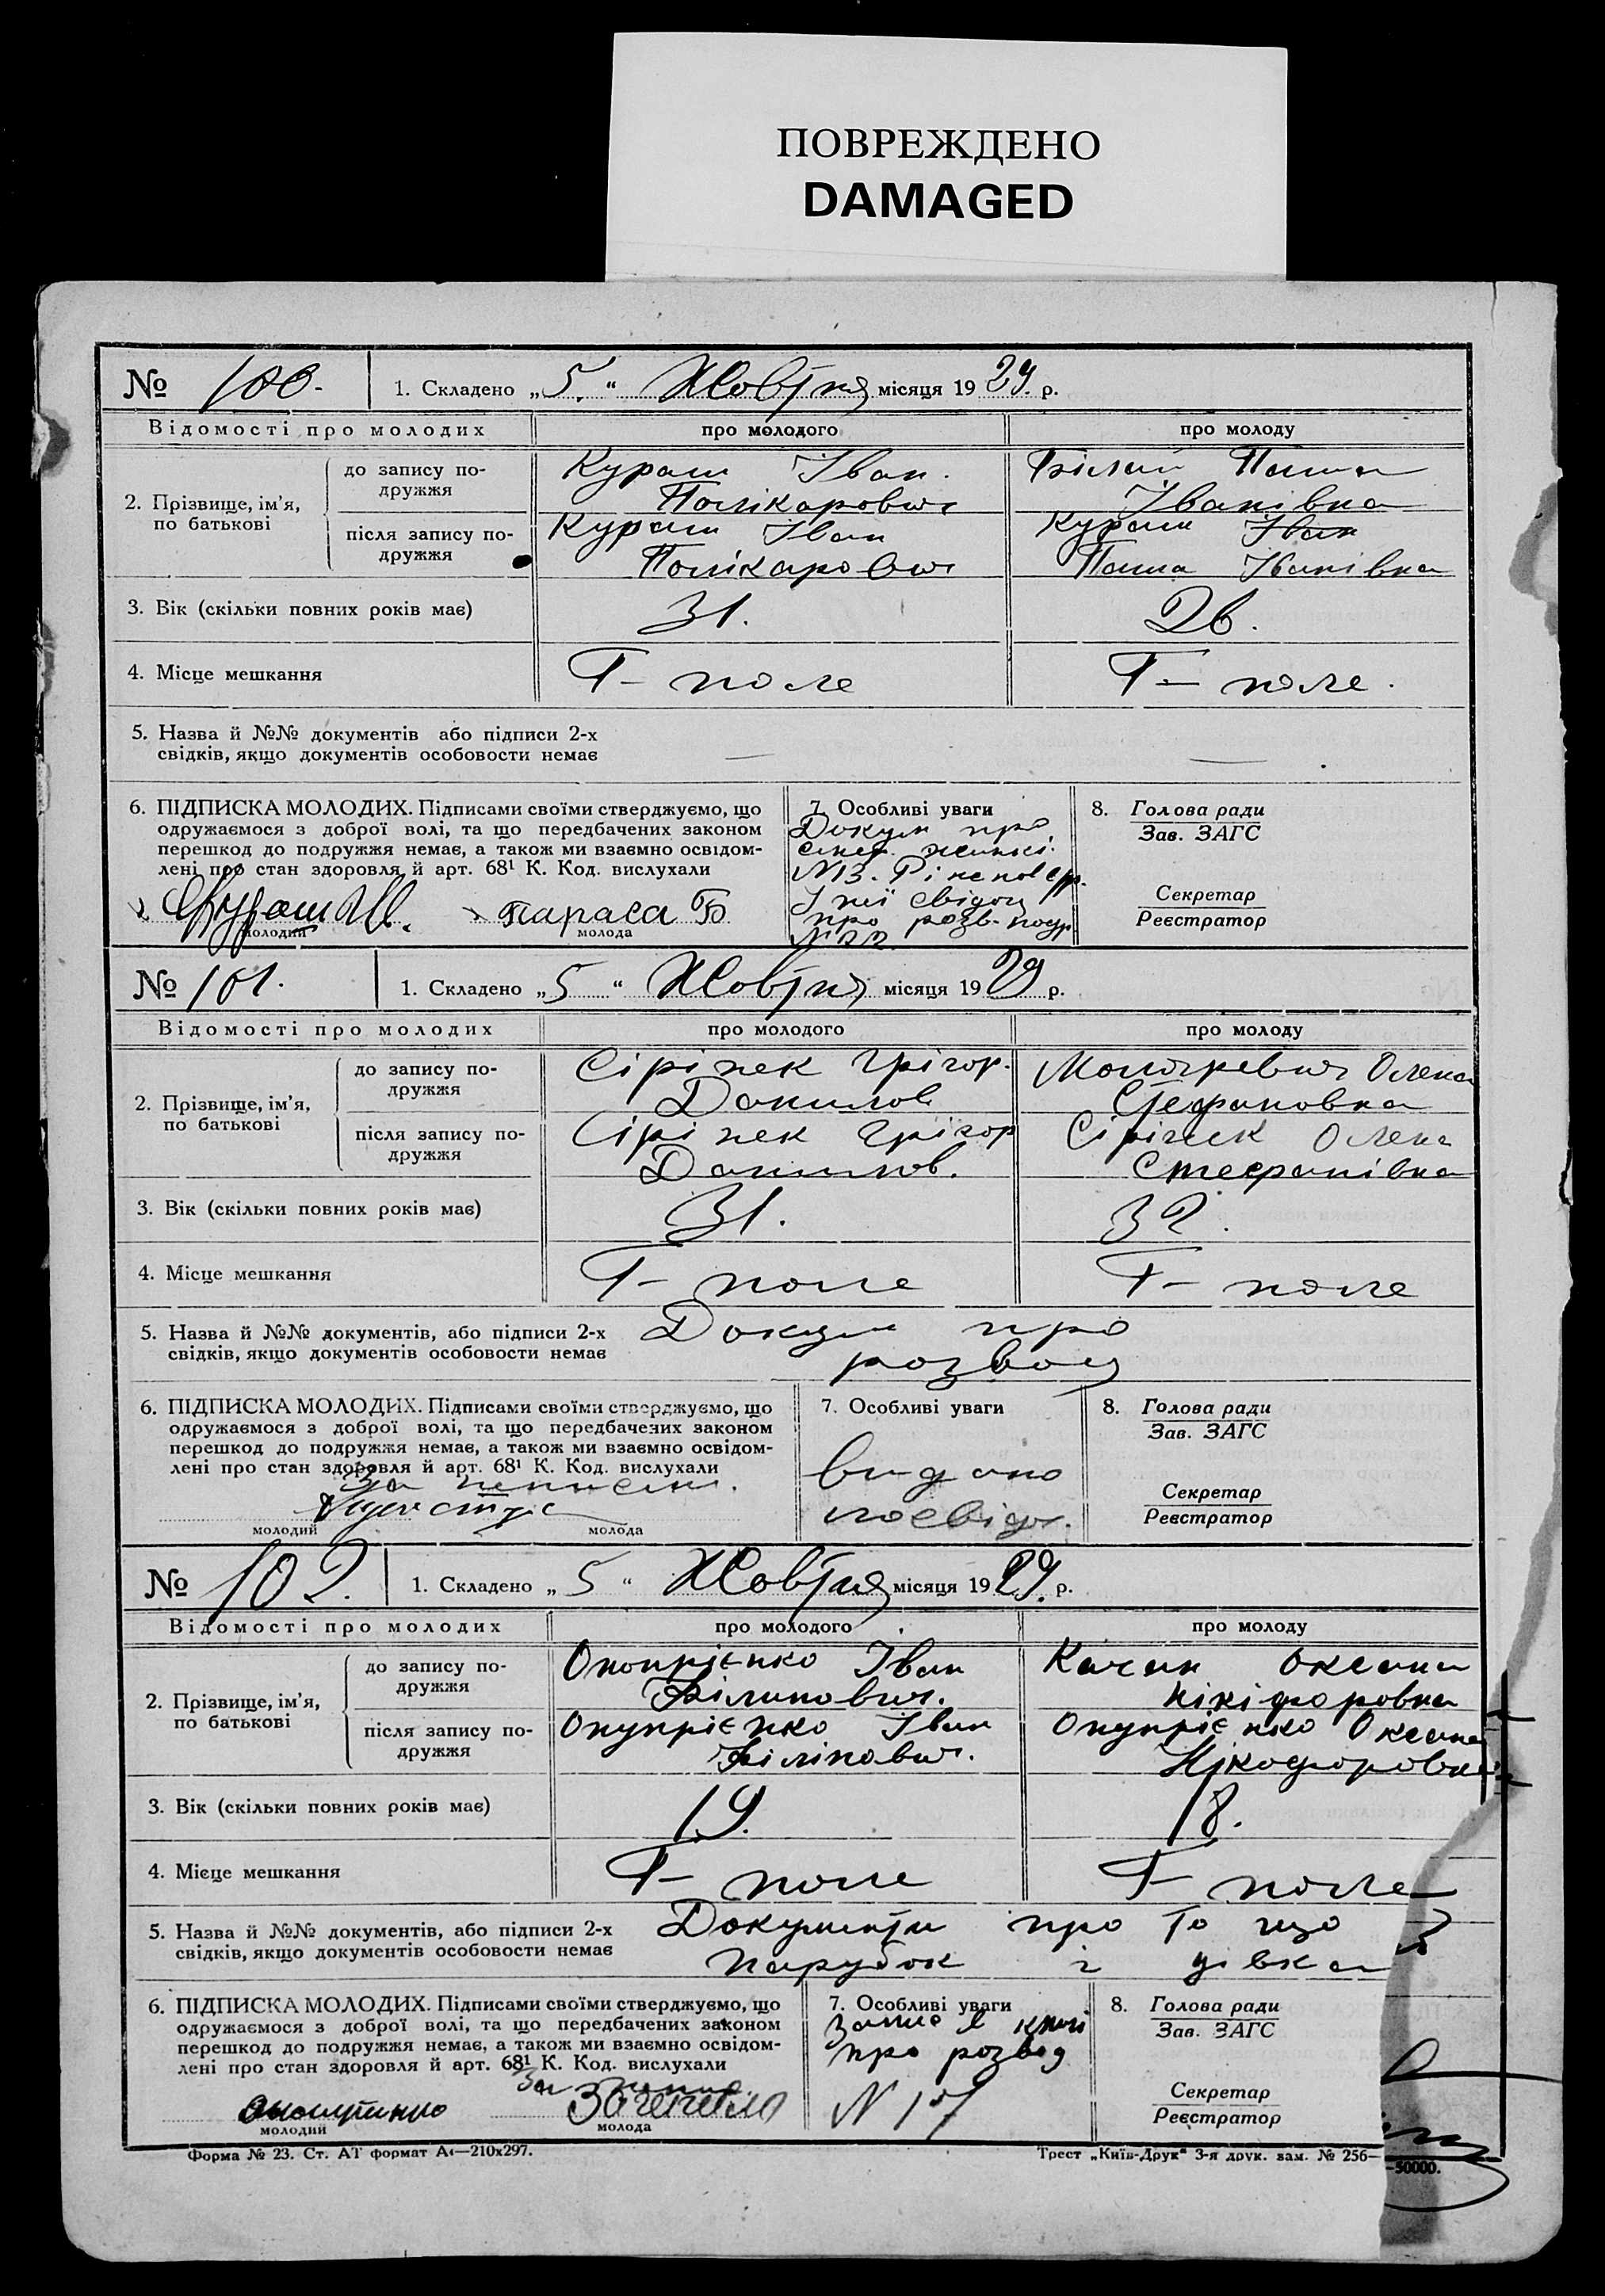 ПОВРЕЖДЕНО
DAMAGED
№ 100. 1. Складено „5.“ Жовтня місяця 1929. р.
Відомості про молодих про молодого про молоду
2. Прізвище, ім'я, по батькові
до запису по-
дружжя
Кураш Іван.
Полікарович
Білай Паша
Іванівна
після запису по-
дружжя
Кураш Іван
Полікарович
Кураш Іван
Паша Іванівна
3. Вік (скільки повних років має) 31. 26.
4. Місце мешкання Г– поле Г– поле.
5. Назва й №№ документів або підписи 2-х
свідків, якщо документів особовости немає — —
6. ПІДПИСКА МОЛОДИХ. Підписами своїми стверджуємо, що
одружаємося з доброї волі, та що передбачених законом
перешкод до подружжя немає, а також ми взаємно освідом-
лені про стан здоровля й арт. 68¹ К. Код. вислухали
Кураш Ів. параса Б
молодий молода
7. Особливі уваги
Докум про
смер. жинкі.
N13.
свідоц
про розв. подр
N22.
8. Голова ради
Зав. ЗАГС
Секретар
Реєстратор
№ 101. 1. Складено „5“ Жовтня місяця 1929 р.
Відомості про молодих про молодого про молоду
2. Прізвище, ім'я,
по батькові
до запису по-
дружжя
Сірінек Грігор.
Данилов
Олена
Стефановна
після запису по-
дружжя
Сірінек Грігор
Данилов.
Сірінек Олена
Стефанівна
3. Вік (скільки повних років має) 31. 32.
4. Місце мешкання Г– поле Г– поле
5. Назва й №№ документів, або підписи 2-х
свідків, якщо документів особовости немає
Докум про
розвод
6. ПІДПИСКА МОЛОДИХ. Підписами своїми стверджуємо, що
одружаємося з доброї волі, та що передбачених законом
перешкод до подружжя немає, а також ми взаємно освідом-
лені про стан здоровля й арт. 68¹ К. Код. вислухали
За неписм.
молодий молода
7. Особливі уваги
видано
посвідч.
8. Голова ради
Зав. ЗАГС
Секретар
Реєстратор
№ 102. 1. Складено „5“ Жовтня місяця 1929. р.
Відомості про молодих про молодого про молоду
2. Прізвище, ім'я,
по батькові
до запису по-
дружжя
Онопрієнко Іван
Філипович.
Качан Оксана
Нікіфоровна
після запису по-
дружжя
Онупрієнко Іван
Філіпович.
Онупрієнко Оксана
Нікофоровна
3. Вік (скільки повних років має) 19. 18.
4. Місце мешкання Г– поле Г– поле
5. Назва й №№ документів, або підписи 2-х
свідків, якщо документів особовости немає
Документи про то що
парубок і дівка
6. ПІДПИСКА МОЛОДИХ. Підписами своїми стверджуємо, що
одружаємося з доброї волі, та що передбачених законом
перешкод до подружжя немає, а також ми взаємно освідом-
лені про стан здоровля й арт. 68¹ К. Код. вислухали
молодий молода
7. Особливі уваги
Запис в книзі
про розвод
N 157
8. Голова ради
Зав. ЗАГС
Секретар
Реєстратор
Форма № 23. Ст. АТ формат А4—210х297. Трест „Київ-Друк“ 3-я друк. зам. № 256—
—50000.